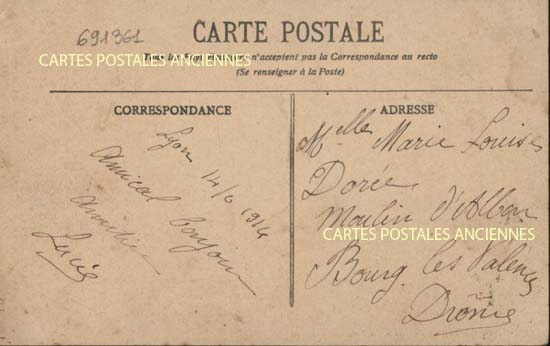 691361
CARTE POSTALE
CARTES POSTALES ANCIENNES
Tous les Pays étrangers n'acceptent pas la Correspondance au recto
(Se renseigner à la Poste)
CORRESPONDANCE
Lyon 14/6 1914
Amical bonjour
Lucie
ADRESSE
Melle Marie Louise
Dorée
Moulin d'Albon
CARTES POSTALES ANCIENNES
Bourg les Valence
Drôme